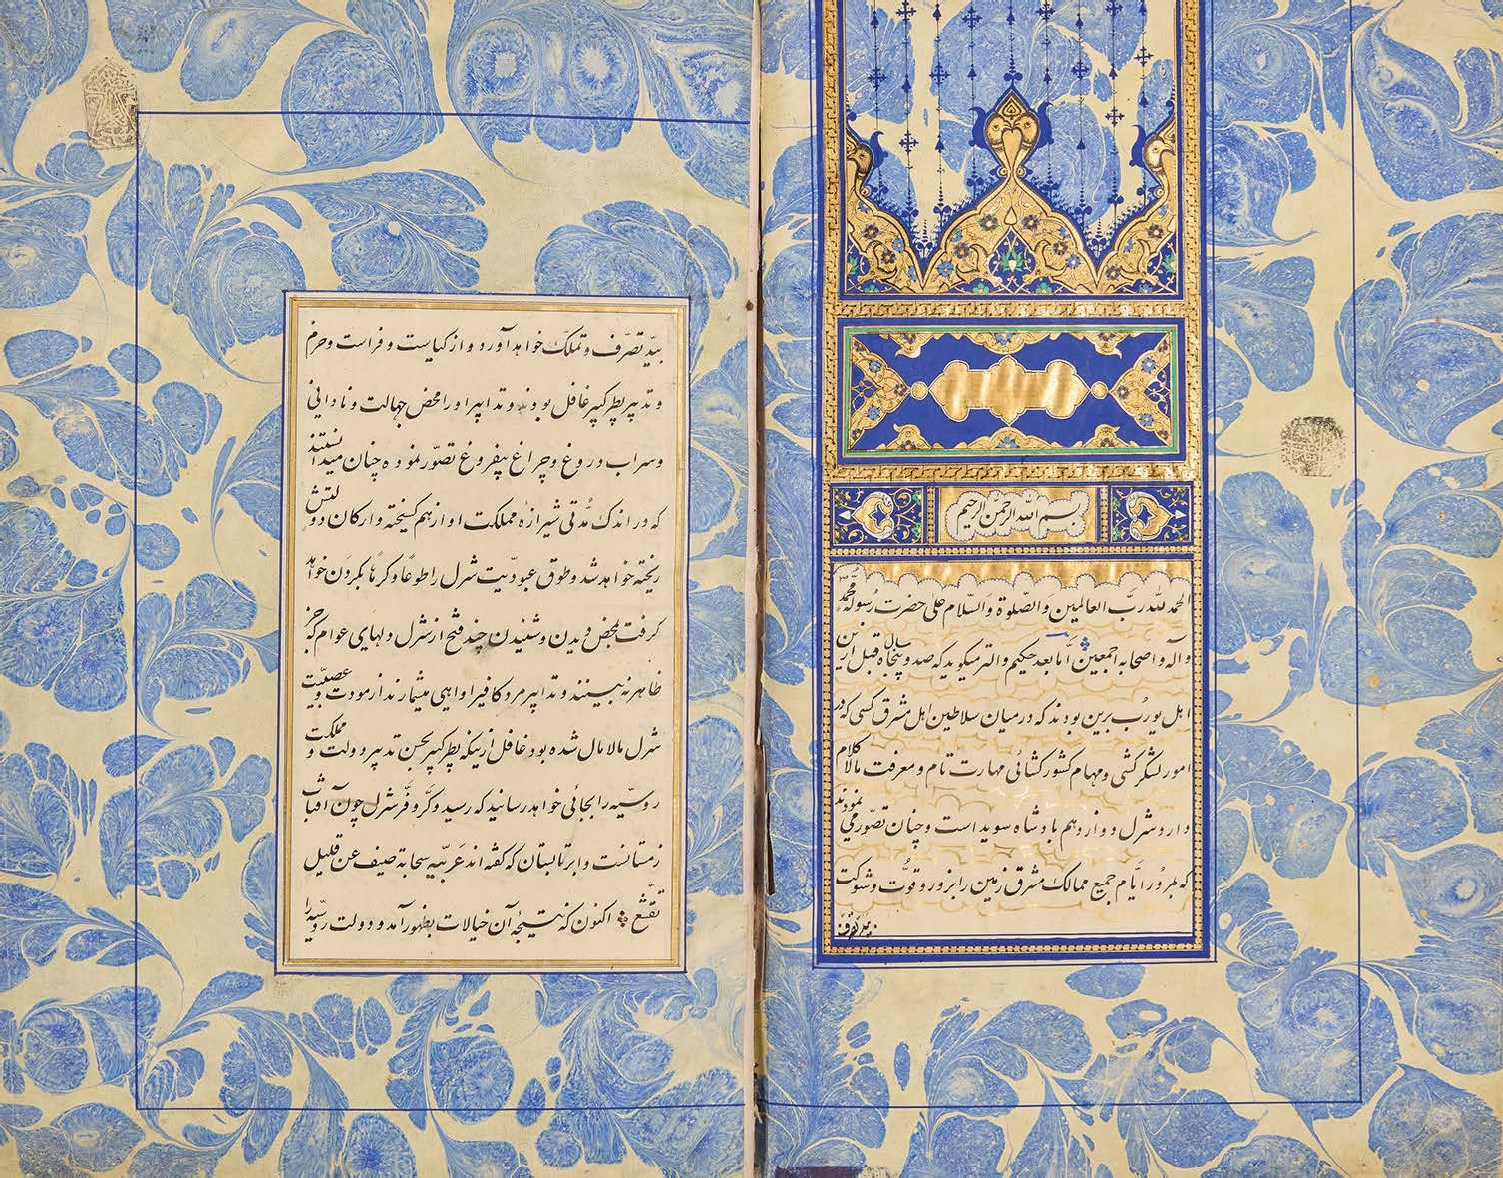 بسم الله الرحمن الرحیم
الحمد لله ربّ العالمین و الصّلوة و السّلام علی حضرت رسوله محمّد
و آله و اصحابه اجمعین امّا بعد حکیم والتر میکوید که صد و پنجاه سال قبل ازین
اهل یورُپ برین بودند که در میان سلاطین اهل مشرق کسی که در
امور لشکرکشی و مهام کشورکشائی مهارت تام و معرفت مالاکلام
دارد شرل دوازدهم پادشاه سوید است و چنان تصوّر می نمودند
که بمرور ایّام جمیع ممالک مشرق زمین را بزور و قوّت و شوکت
بید تصرّف
بید تصرّف و تملّک خواهد آورد و از کیاست و فراست و حزم
و تدبیر پطر کبیر غافل بودند و تدابیر او را محض جهالت و نادانی
و سراب دروغ و چراغ بیفروغ تصوّر نموده چنان میدانستند
که در اندک مُدّتی شیرازه مملکت او از هم کسیخته و ارکان دولتش
ریخته خواهد شد و طوق عبودیّت شرل را طوعاً و کرهاً بکردن خواهد
کرفت بمحض دیدن و شنیدن چند فتح از شرل دلهای عوام که جز
ظاهر نه بینند و تدابیر مرد کافی را واهی میشمارند از مودت و عصبیّت
شرل مالامال شده بود غافل ازینکه پطر کبیر بحسن تدبیر دولت و مملکت
روسیّه را بجائی خواهد رسانید که رسید و کرّ و فرّ شرل چون آفتاب
زمستانست و ابر تابستان که کفته اند عَربیّه سحابة صیف عن قلیل
تقشّع اکنون که نتیجهٔ آن خیالات بظهور آمد و دولت روسیّه را